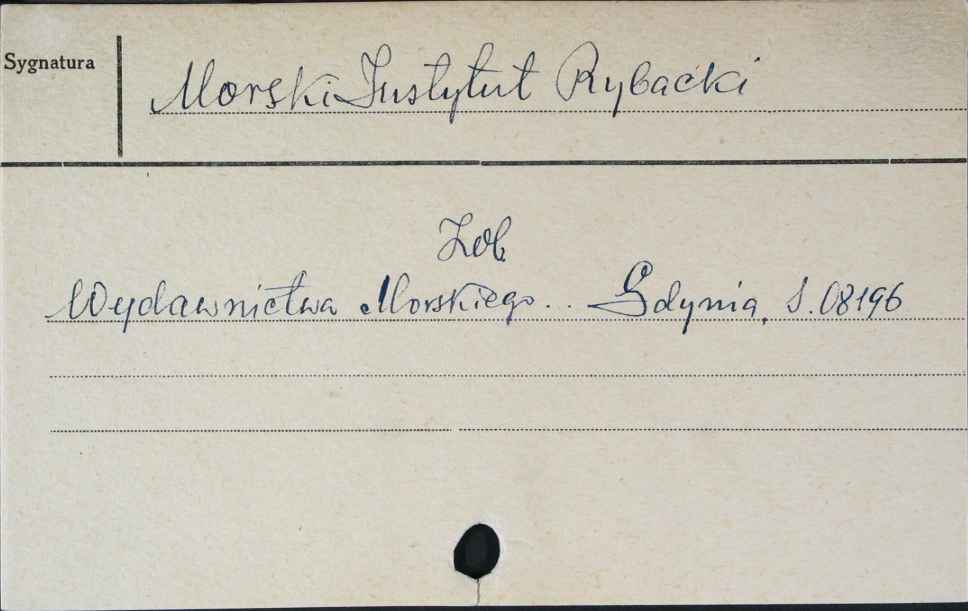 Sygnatura
Morski Instytut Rybacki
Zob
Wydawnictwa Morskiego... Gdynia, S.08196